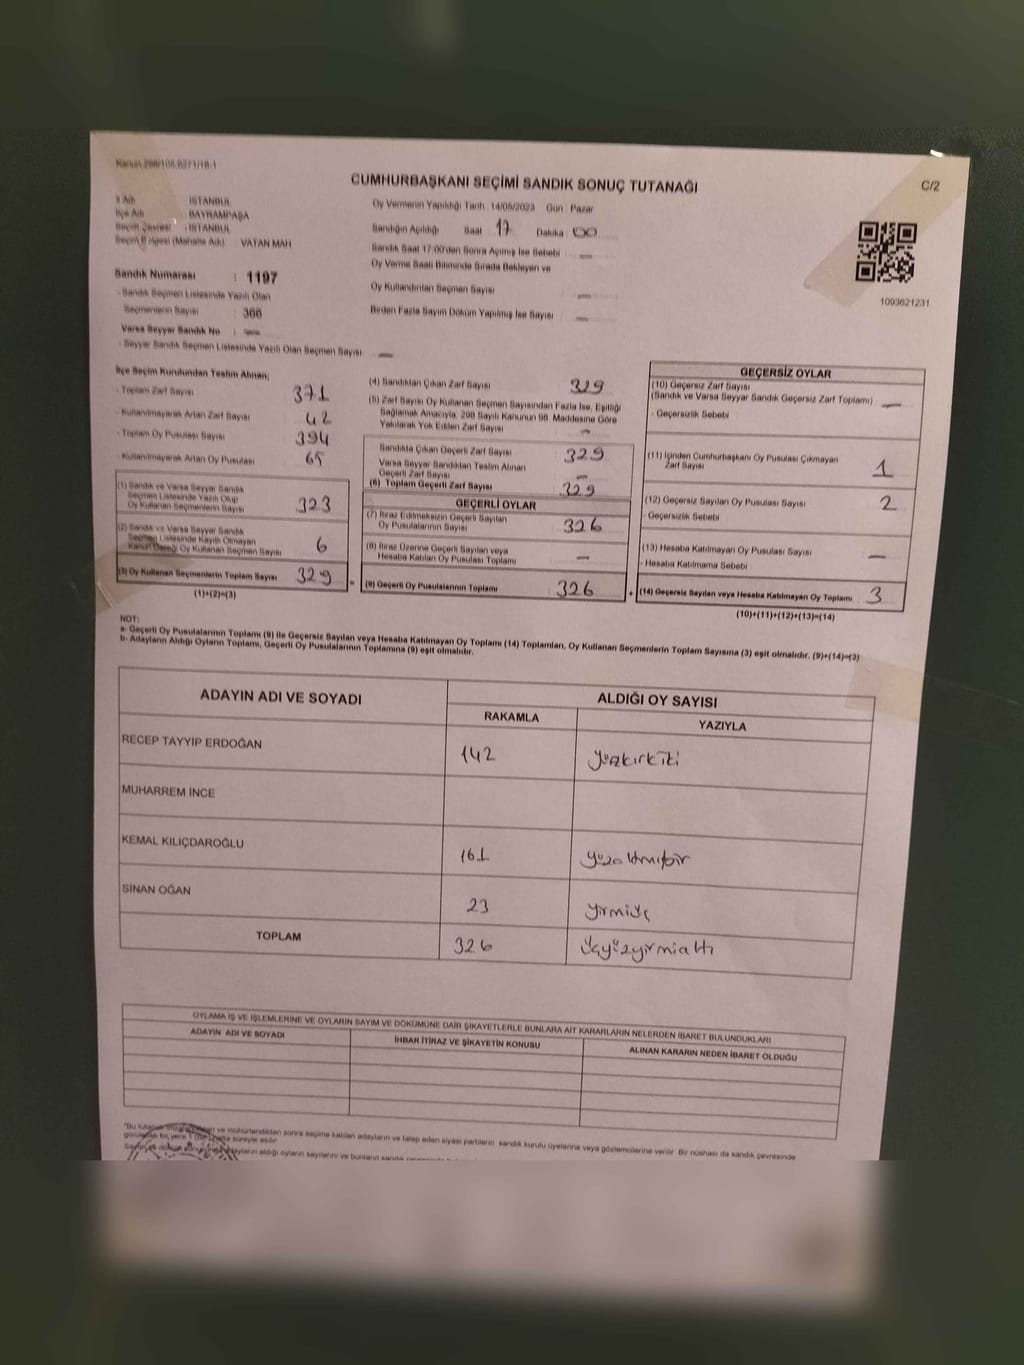 Kanun:298/105,6271/18-1
CUMHURBAŞKANI SEÇİMİ SANDIK SONUÇ TUTANAĞI
C/2
İl Adı : İSTANBUL
İlçe Adı : BAYRAMPAŞA
Seçim Çevresi : İSTANBUL
Seçim Bölgesi (Mahalle Adı) VATAN MAH
Sandık Numarası : 1197
Sandık Seçmen Listesinde Yazılı Olan
Seçmenlerin Sayısı : 366
Varsa Seyyar Sandık No : —
Seyyar Sandık Seçmen Listesinde Yazılı Olan Seçmen Sayısı —
Oy Vermenin Yapıldığı Tarih 14/05/2023 Gün : Pazar
Sandığın Açıldığı Saat 17 Dakika 00
Sandık Saat 17:00'den Sonra Açılmış İse Sebebi —
Oy Verme Saati Bitiminde Sırada Bekleyen ve
Oy Kullandırılan Seçmen Sayısı —
Birden Fazla Sayım Döküm Yapılmış İse Sayısı —
1093621231
İlçe Seçim Kurulundan Teslim Alınan;
- Toplam Zarf Sayısı 371
- Kullanılmayarak Artan Zarf Sayısı 42
- Toplam Oy Pusulası Sayısı 394
- Kullanılmayarak Artan Oy Pusulası 65
(1) Sandık ve Varsa Seyyar Sandık
Seçmen Listesinde Yazılı Olup
Oy Kullanan Seçmenlerin Sayısı 323
(2) Sandık ve Varsa Seyyar Sandık
Seçmen Listesinde Kayıtlı Olmayan
Kanun Gereği Oy Kullanan Seçmen Sayısı 6
(3) Oy Kullanan Seçmenlerin Toplam Sayısı 329
(1)+(2)=(3)
(4) Sandıktan Çıkan Zarf Sayısı 329
(5) Zarf Sayısı Oy Kullanan Seçmen Sayısından Fazla İse, Eşitliği
Sağlamak Amacıyla, 298 Sayılı Kanunun 98. Maddesine Göre
Yakılarak Yok Edilen Zarf Sayısı —
Sandıkta Çıkan Geçerli Zarf Sayısı 329
Varsa Seyyar Sandıktan Teslim Alınan
Geçerli Zarf Sayısı —
(6) Toplam Geçerli Zarf Sayısı 329
GEÇERLİ OYLAR
(7) İtiraz Edilmeksizin Geçerli Sayılan
Oy Pusulalarının Sayısı 326
(8) İtiraz Üzerine Geçerli Sayılan veya
Hesaba Katılan Oy Pusulası Toplamı —
= (9) Geçerli Oy Pusulalarının Toplamı 326
GEÇERSİZ OYLAR
(10) Geçersiz Zarf Sayısı
(Sandık ve Varsa Seyyar Sandık Geçersiz Zarf Toplamı) —
- Geçersizlik Sebebi
(11) İçinden Cumhurbaşkanı Oy Pusulası Çıkmayan
Zarf Sayısı 1
(12) Geçersiz Sayılan Oy Pusulası Sayısı 2
- Geçersizlik Sebebi
(13) Hesaba Katılmayan Oy Pusulası Sayısı —
- Hesaba Katılmama Sebebi
+ (14) Geçersiz Sayılan veya Hesaba Katılmayan Oy Toplamı 3
(10)+(11)+(12)+(13)=(14)
NOT:
a- Geçerli Oy Pusulalarının Toplamı (9) ile Geçersiz Sayılan veya Hesaba Katılmayan Oy Toplamı (14) Toplamları, Oy Kullanan Seçmenlerin Toplam Sayısına (3) eşit olmalıdır. (9)+(14)=(3)
b- Adayların Aldığı Oyların Toplamı, Geçerli Oy Pusulalarının Toplamına (9) eşit olmalıdır.
ADAYIN ADI VE SOYADI
ALDIĞI OY SAYISI
RAKAMLA YAZIYLA
RECEP TAYYİP ERDOĞAN 142 yüzkırkiki
MUHARREM İNCE
KEMAL KILIÇDAROĞLU 161 yüzaltmışbir
SİNAN OĞAN 23 yirmiüç
TOPLAM 326 üçyüzyirmialtı
OYLAMA İŞ VE İŞLEMLERİNE VE OYLARIN SAYIM VE DÖKÜMÜNE DAİR ŞİKAYETLERLE BUNLARA AİT KARARLARIN NELERDEN İBARET BULUNDUKLARI
ADAYIN ADI VE SOYADI İHBAR İTİRAZ VE ŞİKAYETİN KONUSU ALINAN KARARIN NEDEN İBARET OLDUĞU
"Bu tutanak ve mühürlendikten sonra seçime katılan adayların ve talep eden siyasi partilerin sandık kurulu üyelerine veya gözlemcilerine verilir. Bir nüshası da sandık çevresinde
süreyle asılır
aldığı oyların sayılarını ve bunların sandık